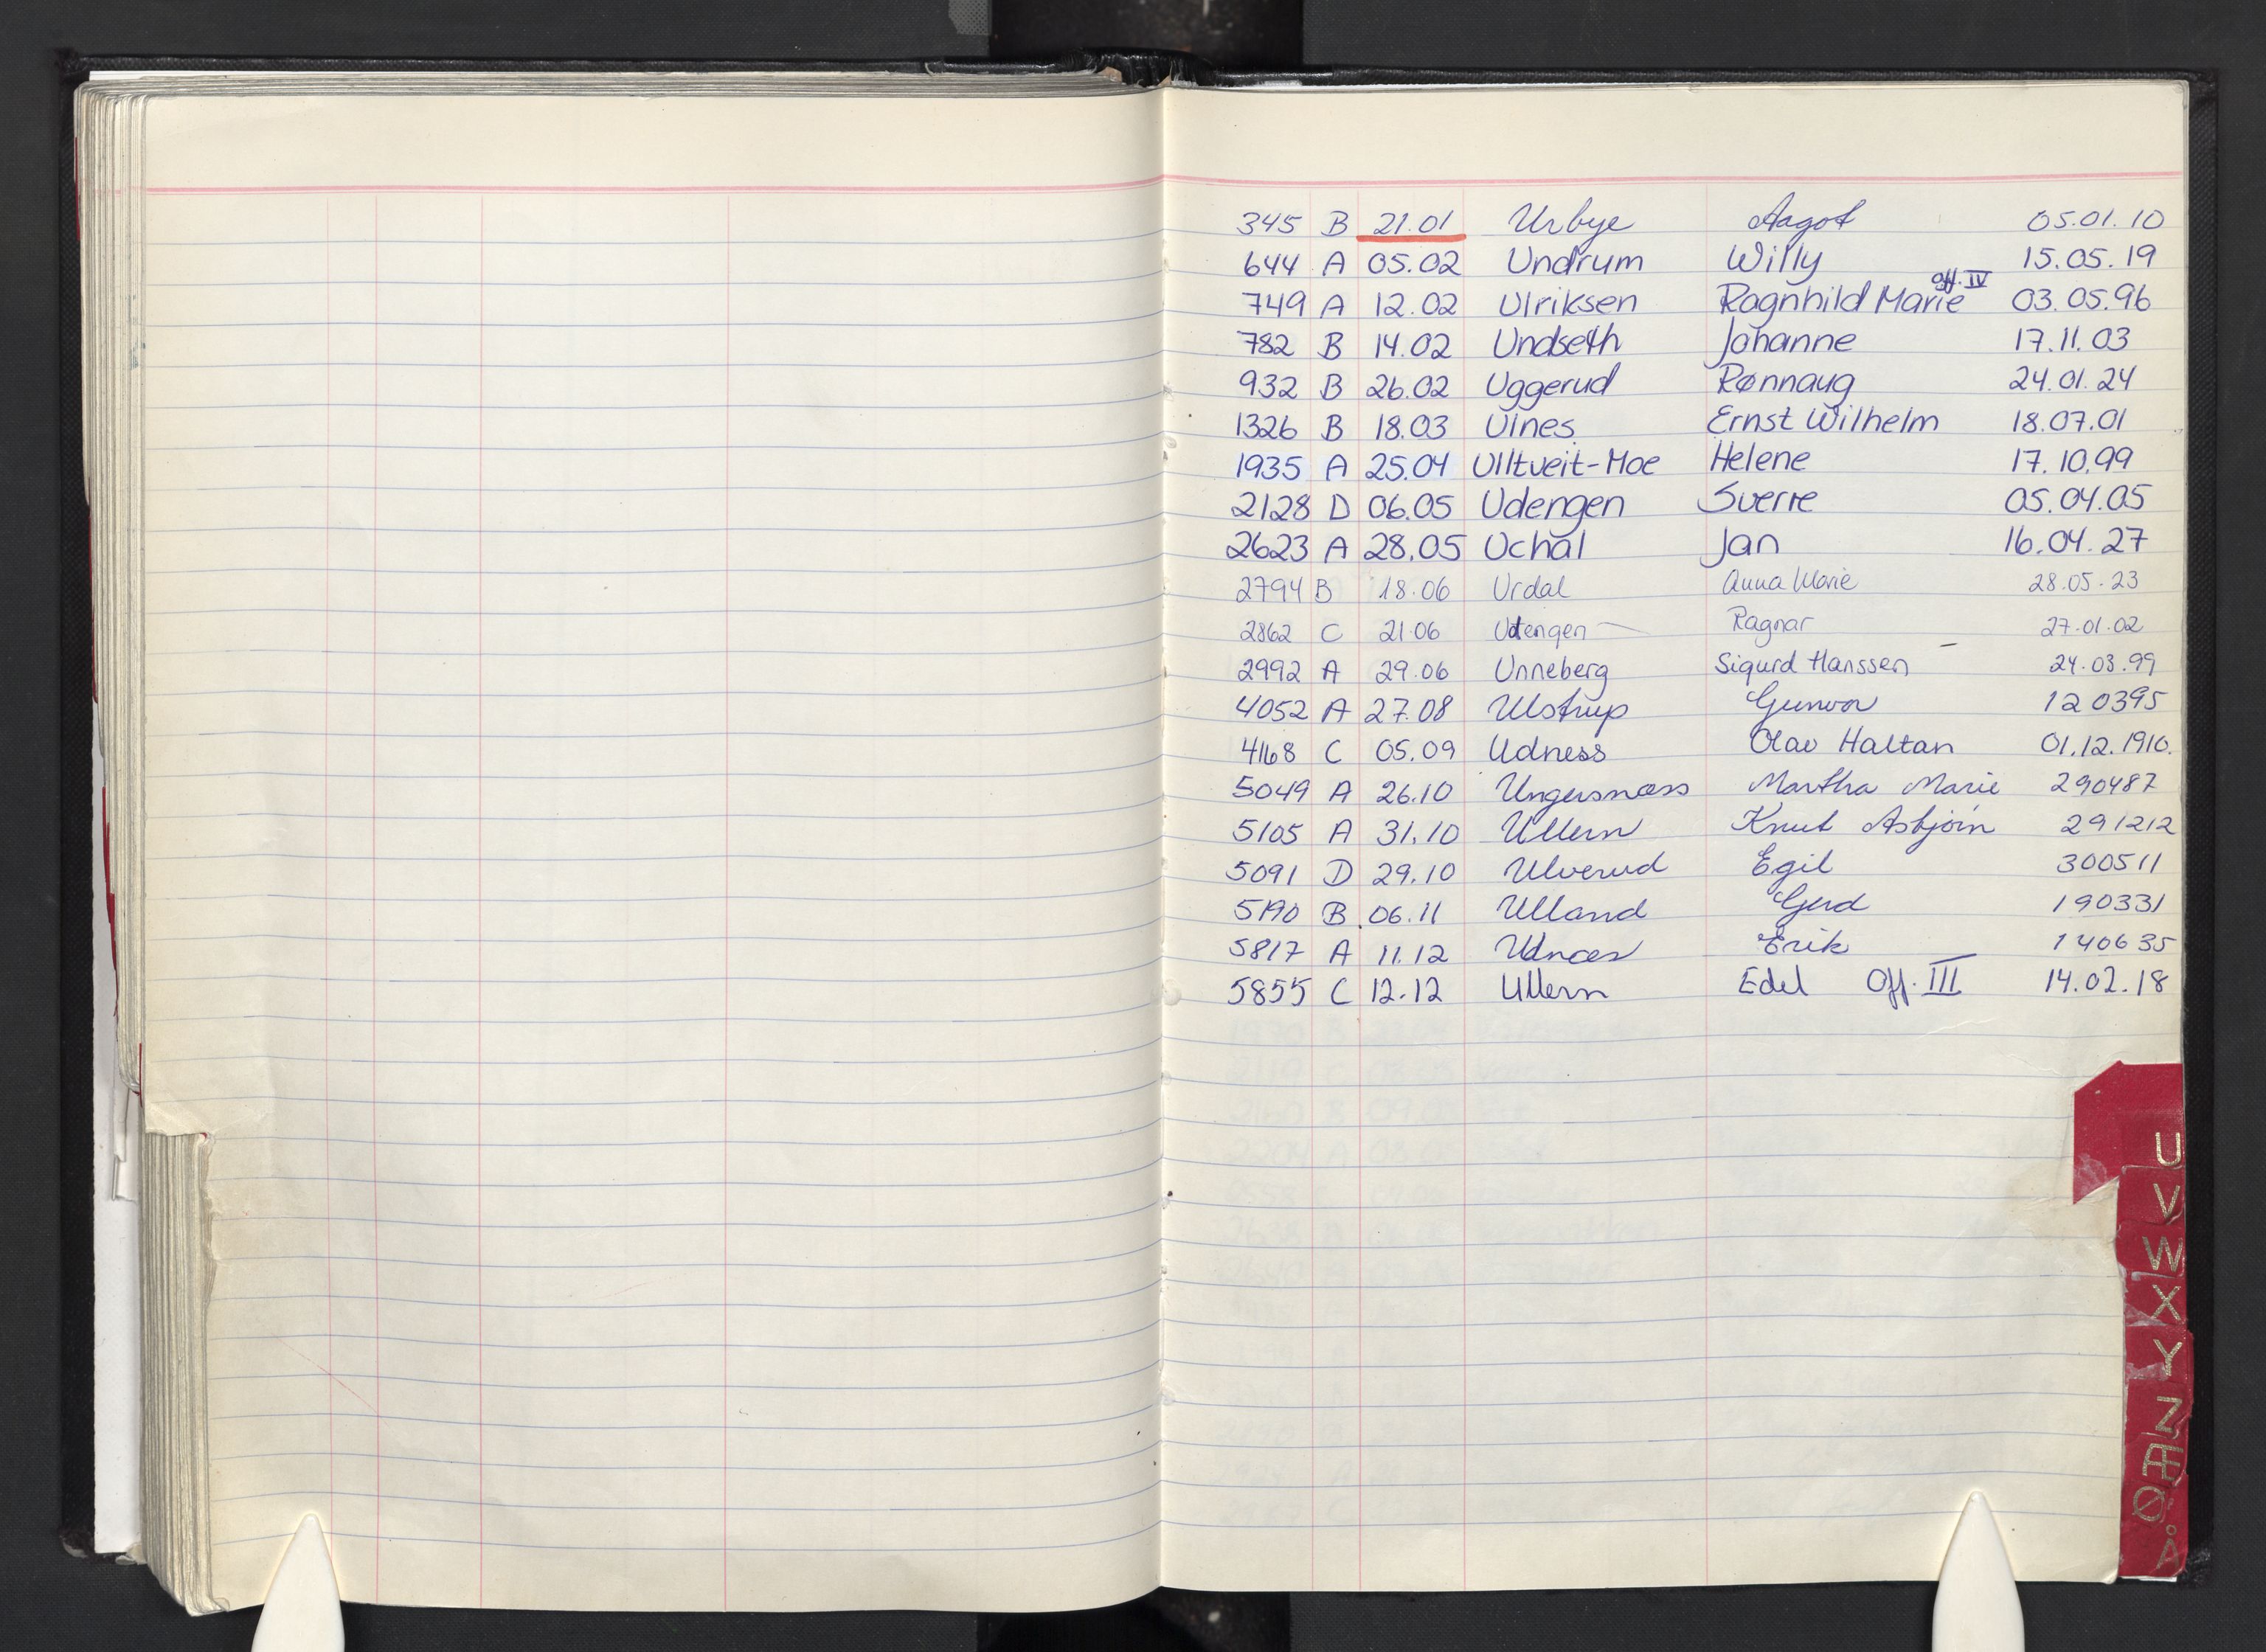 345 B 21.01 Urbye Aagot 05.01.10
644 A 05.02 Undrum Willy 15.05.19
749 A 12.02 Ulriksen Ragnhild Marie off. IV 03.05.96
782 B 14.02 Undseth Johanne 17.11.03
932 B 26.02 Uggerud Rønnaug 24.01.24
1326 B 18.03 Ulnes Ernst Wilhelm 18.07.01
1935 A 25.04 Ulltveit-Moe Helene 17.10.99
2128 D 06.05 Udengen Sverre 05.04.05
2623 A 28.05 Uchal Jan 16.04.27
2794 B 18.06 Urdal Anna Marie 28.05.23
2862 C 21.06 Udengen Ragnar 27.01.02
2992 A 29.06 Unneberg Sigurd Hanssen 24.03.99
4052 A 27.08 Ulstrup Gunvor 120395
4168 C 05.09 Udness Olav Haltan 01.12.1910.
5049 A 26.10 Ungersnæss Martha Marie 290487
5105 A 31.10 Ullern Knut Asbjørn 291212
5091 D 29.10 Ulverud Egil 300511
5190 B 06.11 Ulland Gerd 190331
5817 A 11.12 Udnæs Erik 140635
5855 C 12.12 Ullern Edel Off. III 14.02.18
U
V
W
X
Y
Z
Æ
Ø
Å